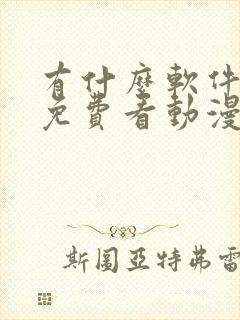 有什麼軟件
免費看動漫
斯圖亞特弗雷